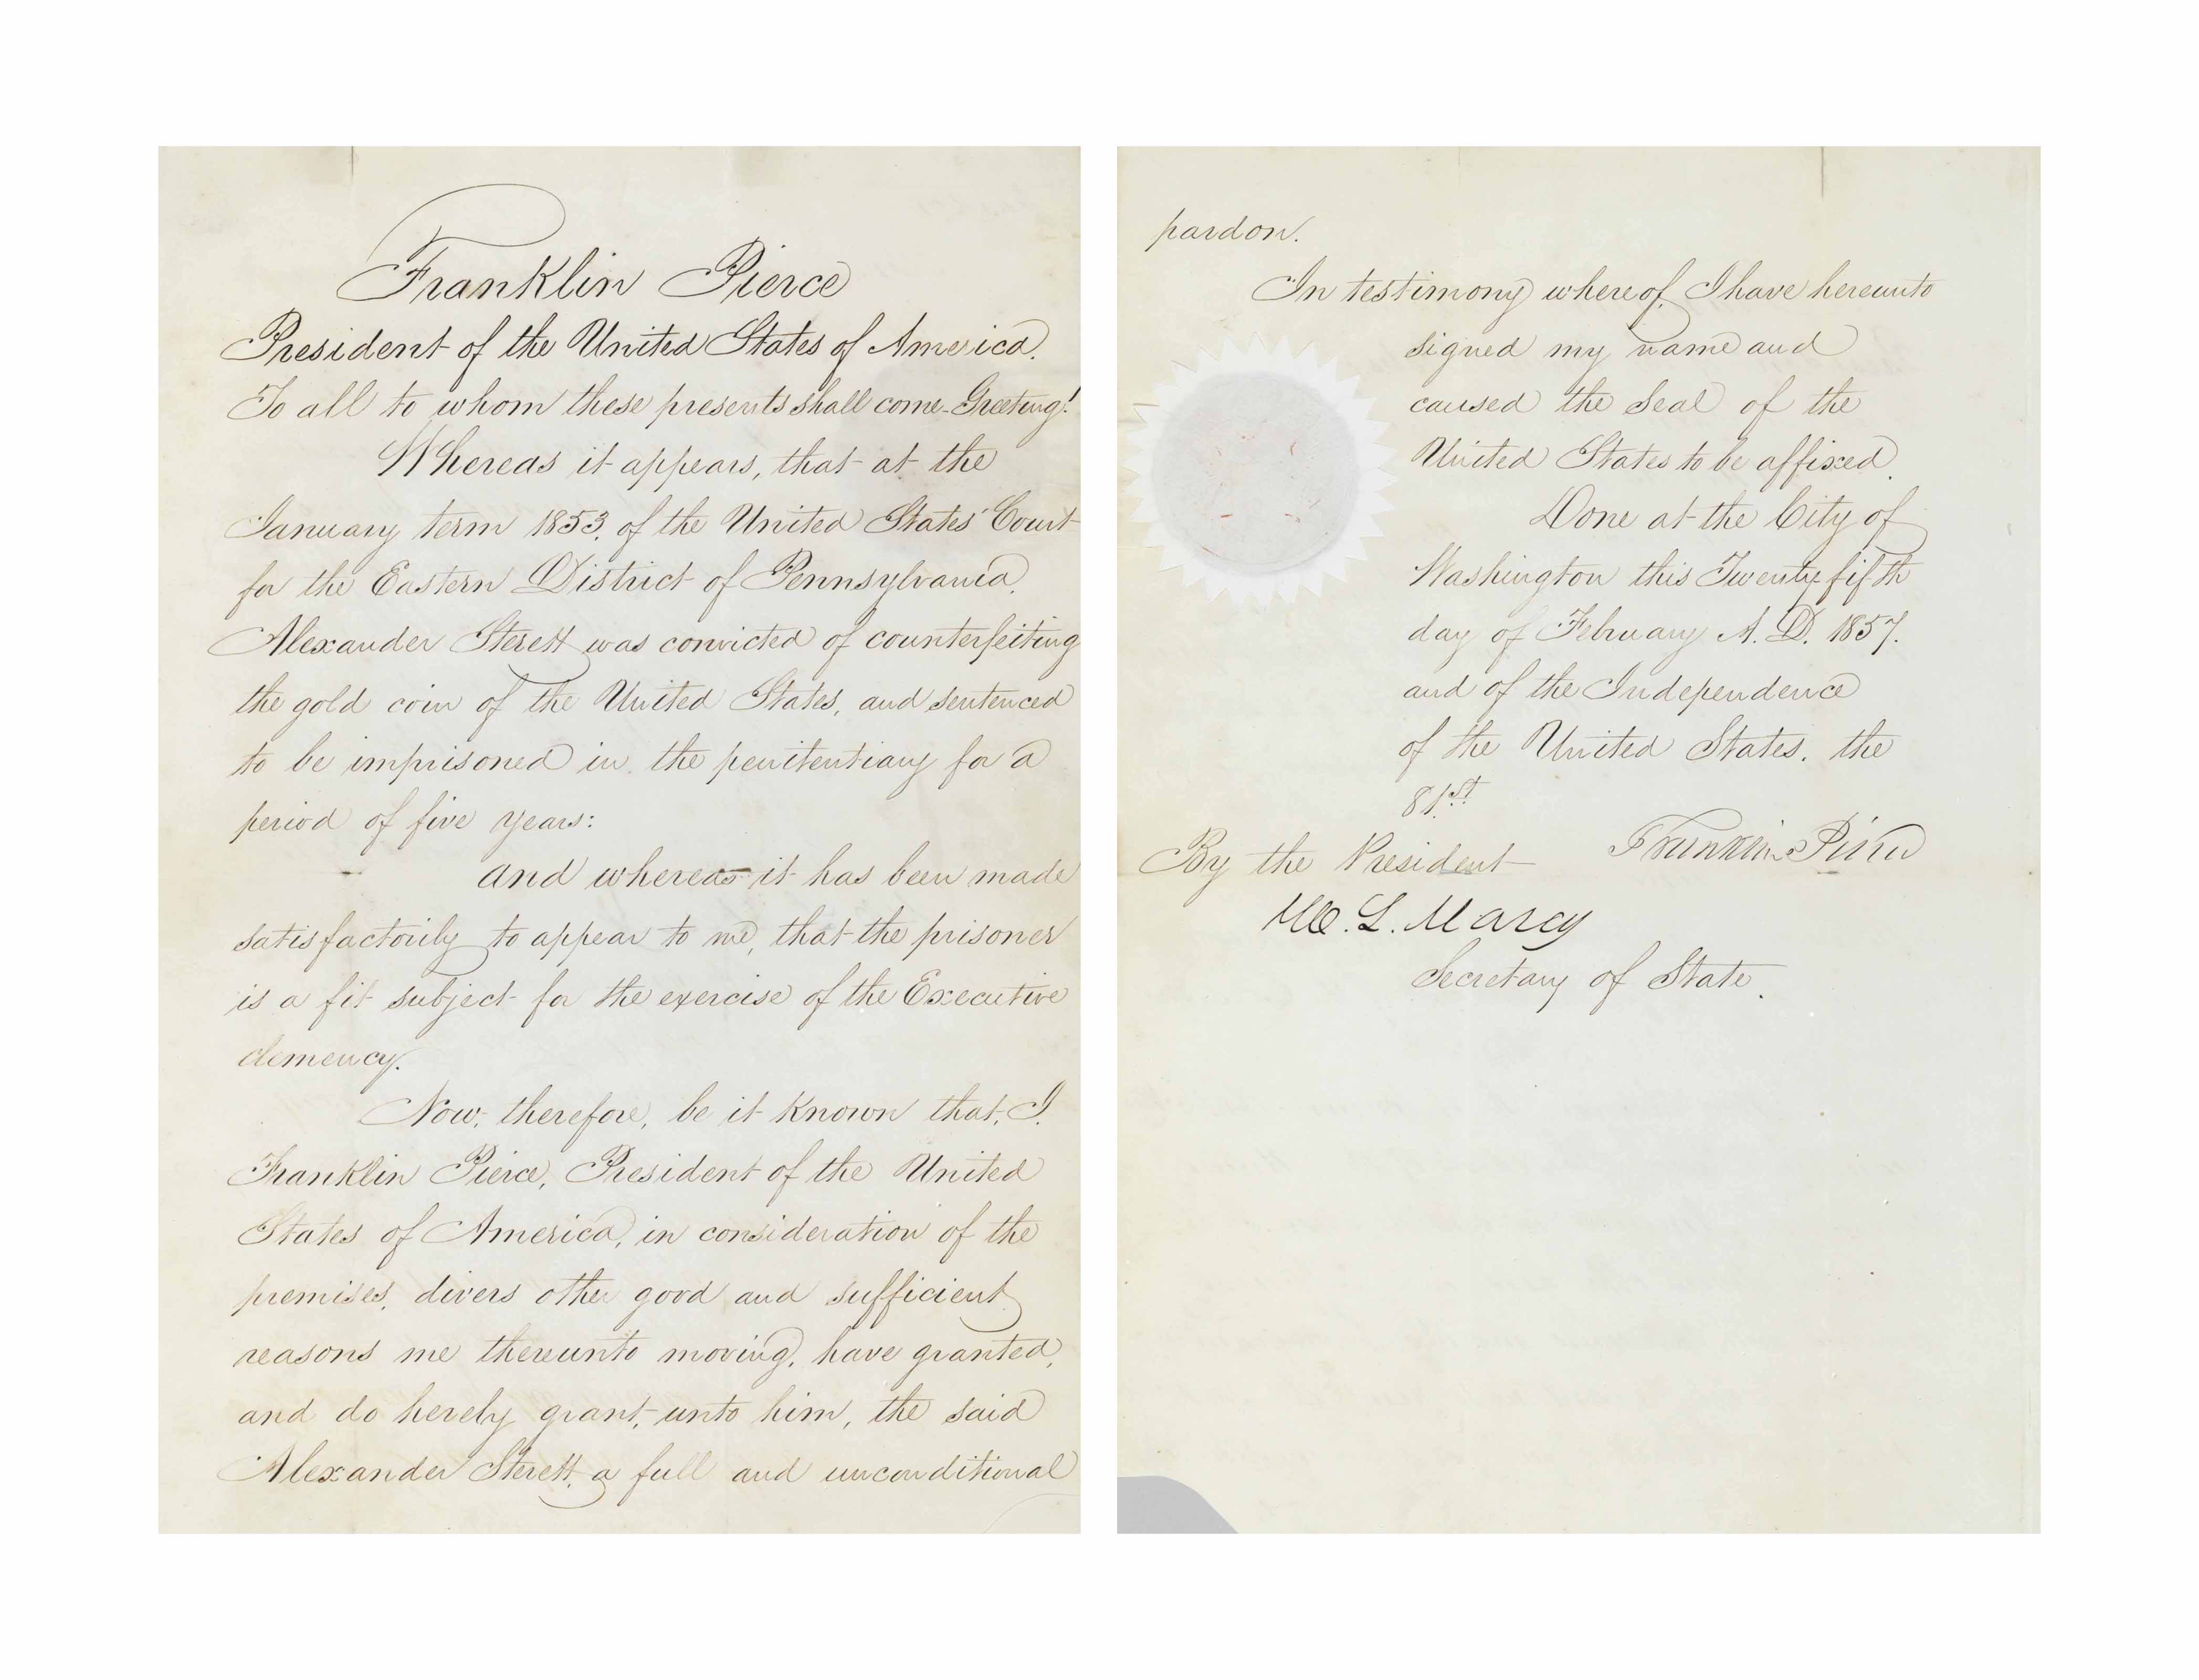 Franklin Pierce
President of the United States of America.
To all to whom these presents shall come - Greeting!
Whereas it appears, that at the
January term 1853, of the United States' Court
for the Eastern District of Pennsylvania,
Alexander Sterett was convicted of counterfeiting
the gold coin of the United States, and sentenced
to be imprisoned in the penitentiary for a
period of five years:
and whereas it has been made
satisfactorily to appear to me, that the prisoner
is a fit subject for the exercise of the Executive
clemency.
Now, therefore, be it known that, I.
Franklin Pierce, President of the United
States of America, in consideration of the
premises, divers other good and sufficient
reasons me thereunto moving, have granted,
and do hereby grant, unto him, the said
Alexander Sterett, a full and unconditional
pardon.
In testimony whereof, I have hereunto
signed my name and
caused the Seal of the
United States to be affixed.
Done at the City of
Washington this Twenty fifth
day of February A. D. 1857.
and of the Independence
of the United States, the
81st.
Franklin Pierce
By the President
W. L. Marcy
Secretary of State.